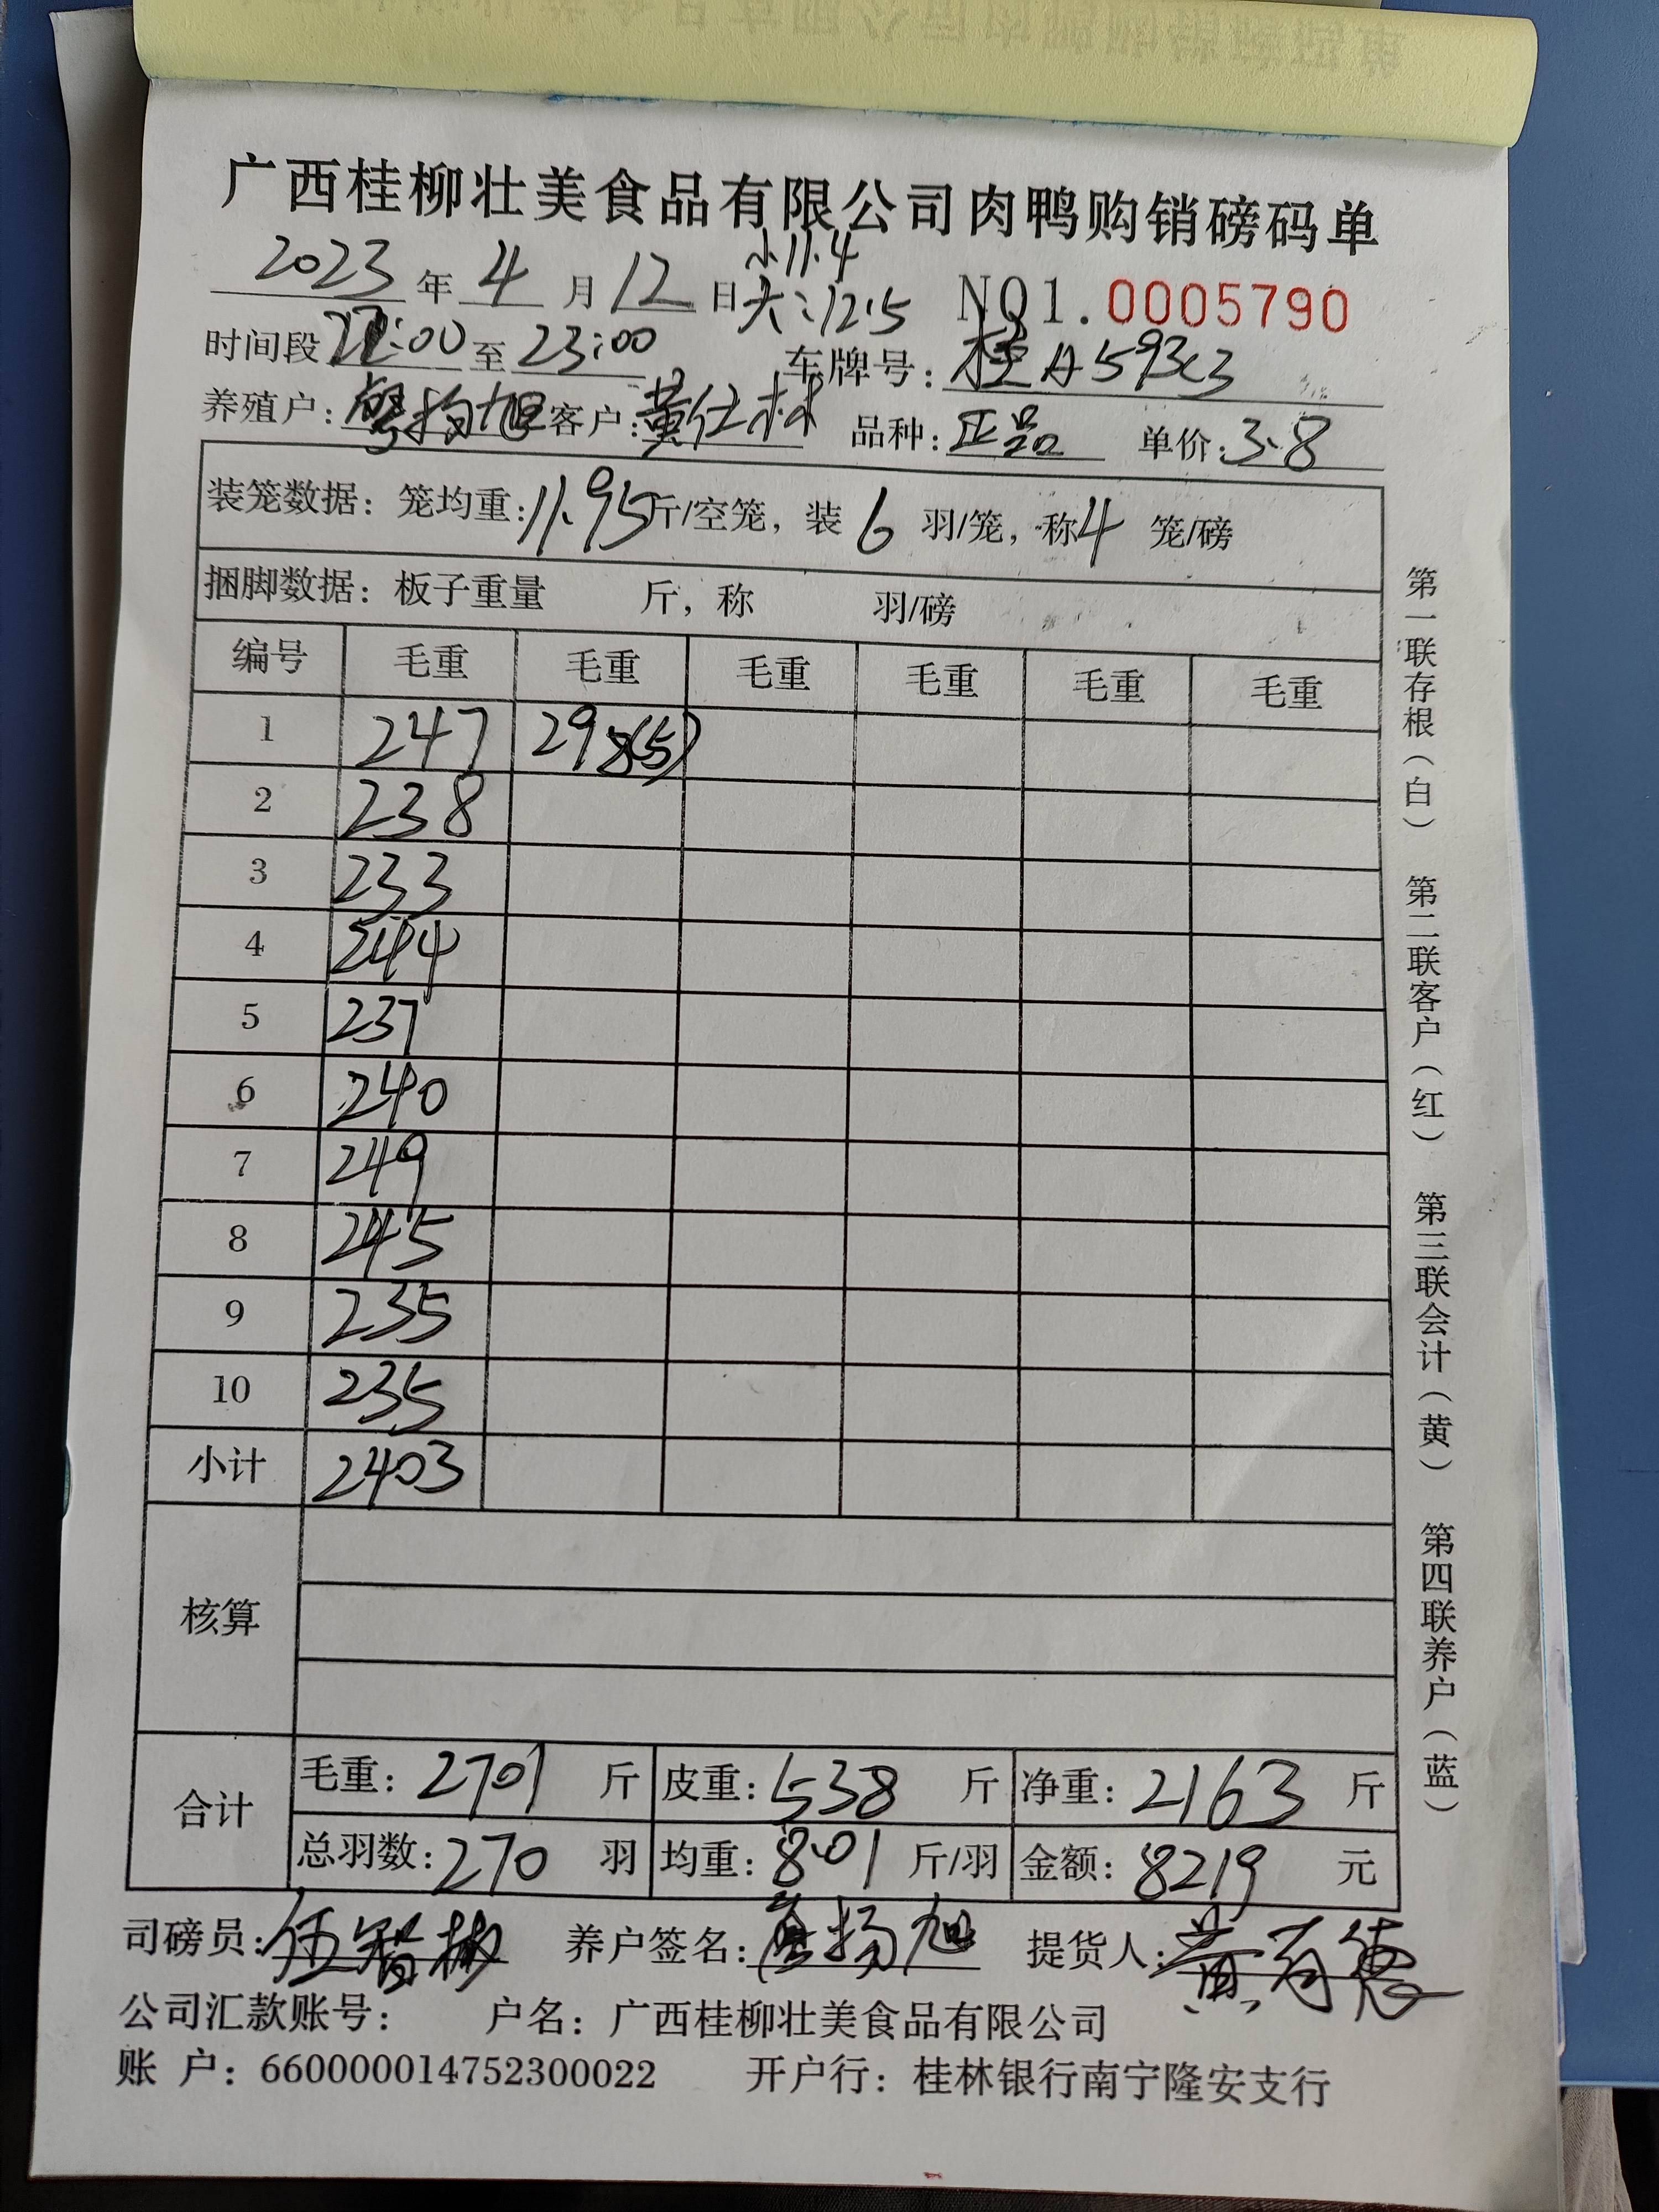 广西桂柳壮美食品有限公司肉鸭购销磅码单
小11.4
2023年4月12日 大:12.5 NO1.0005790
时间段22:00至23:00 车牌号:桂A593
养殖户: 扬旭 客户:黄仕林 品种:正品 单价:3.8
装笼数据:笼均重:11.95斤/空笼,装6羽/笼,称4笼/磅
捆脚数据:板子重量 斤,称 羽/磅
编号 毛重 毛重 毛重 毛重 毛重 毛重
1 247 298(5)
2 238
3 233
4 244
5 237
6 240
7 249
8 245
9 235
10 235
小计 2403
核算
合计 毛重:2701斤 皮重:538斤 净重:2163斤
总羽数:270羽 均重:8.01斤/羽 金额:8219元
司磅员:伍智彬 养户签名: 扬旭 提货人:黄有德
公司汇款账号: 户名:广西桂柳壮美食品有限公司
账 户:660000014752300022 开户行:桂林银行南宁隆安支行
第一联存根(白) 第二联客户(红) 第三联会计(黄) 第四联养户(蓝)